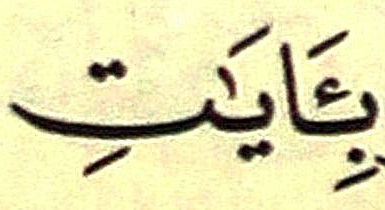 بِـَٔايَٰتِ